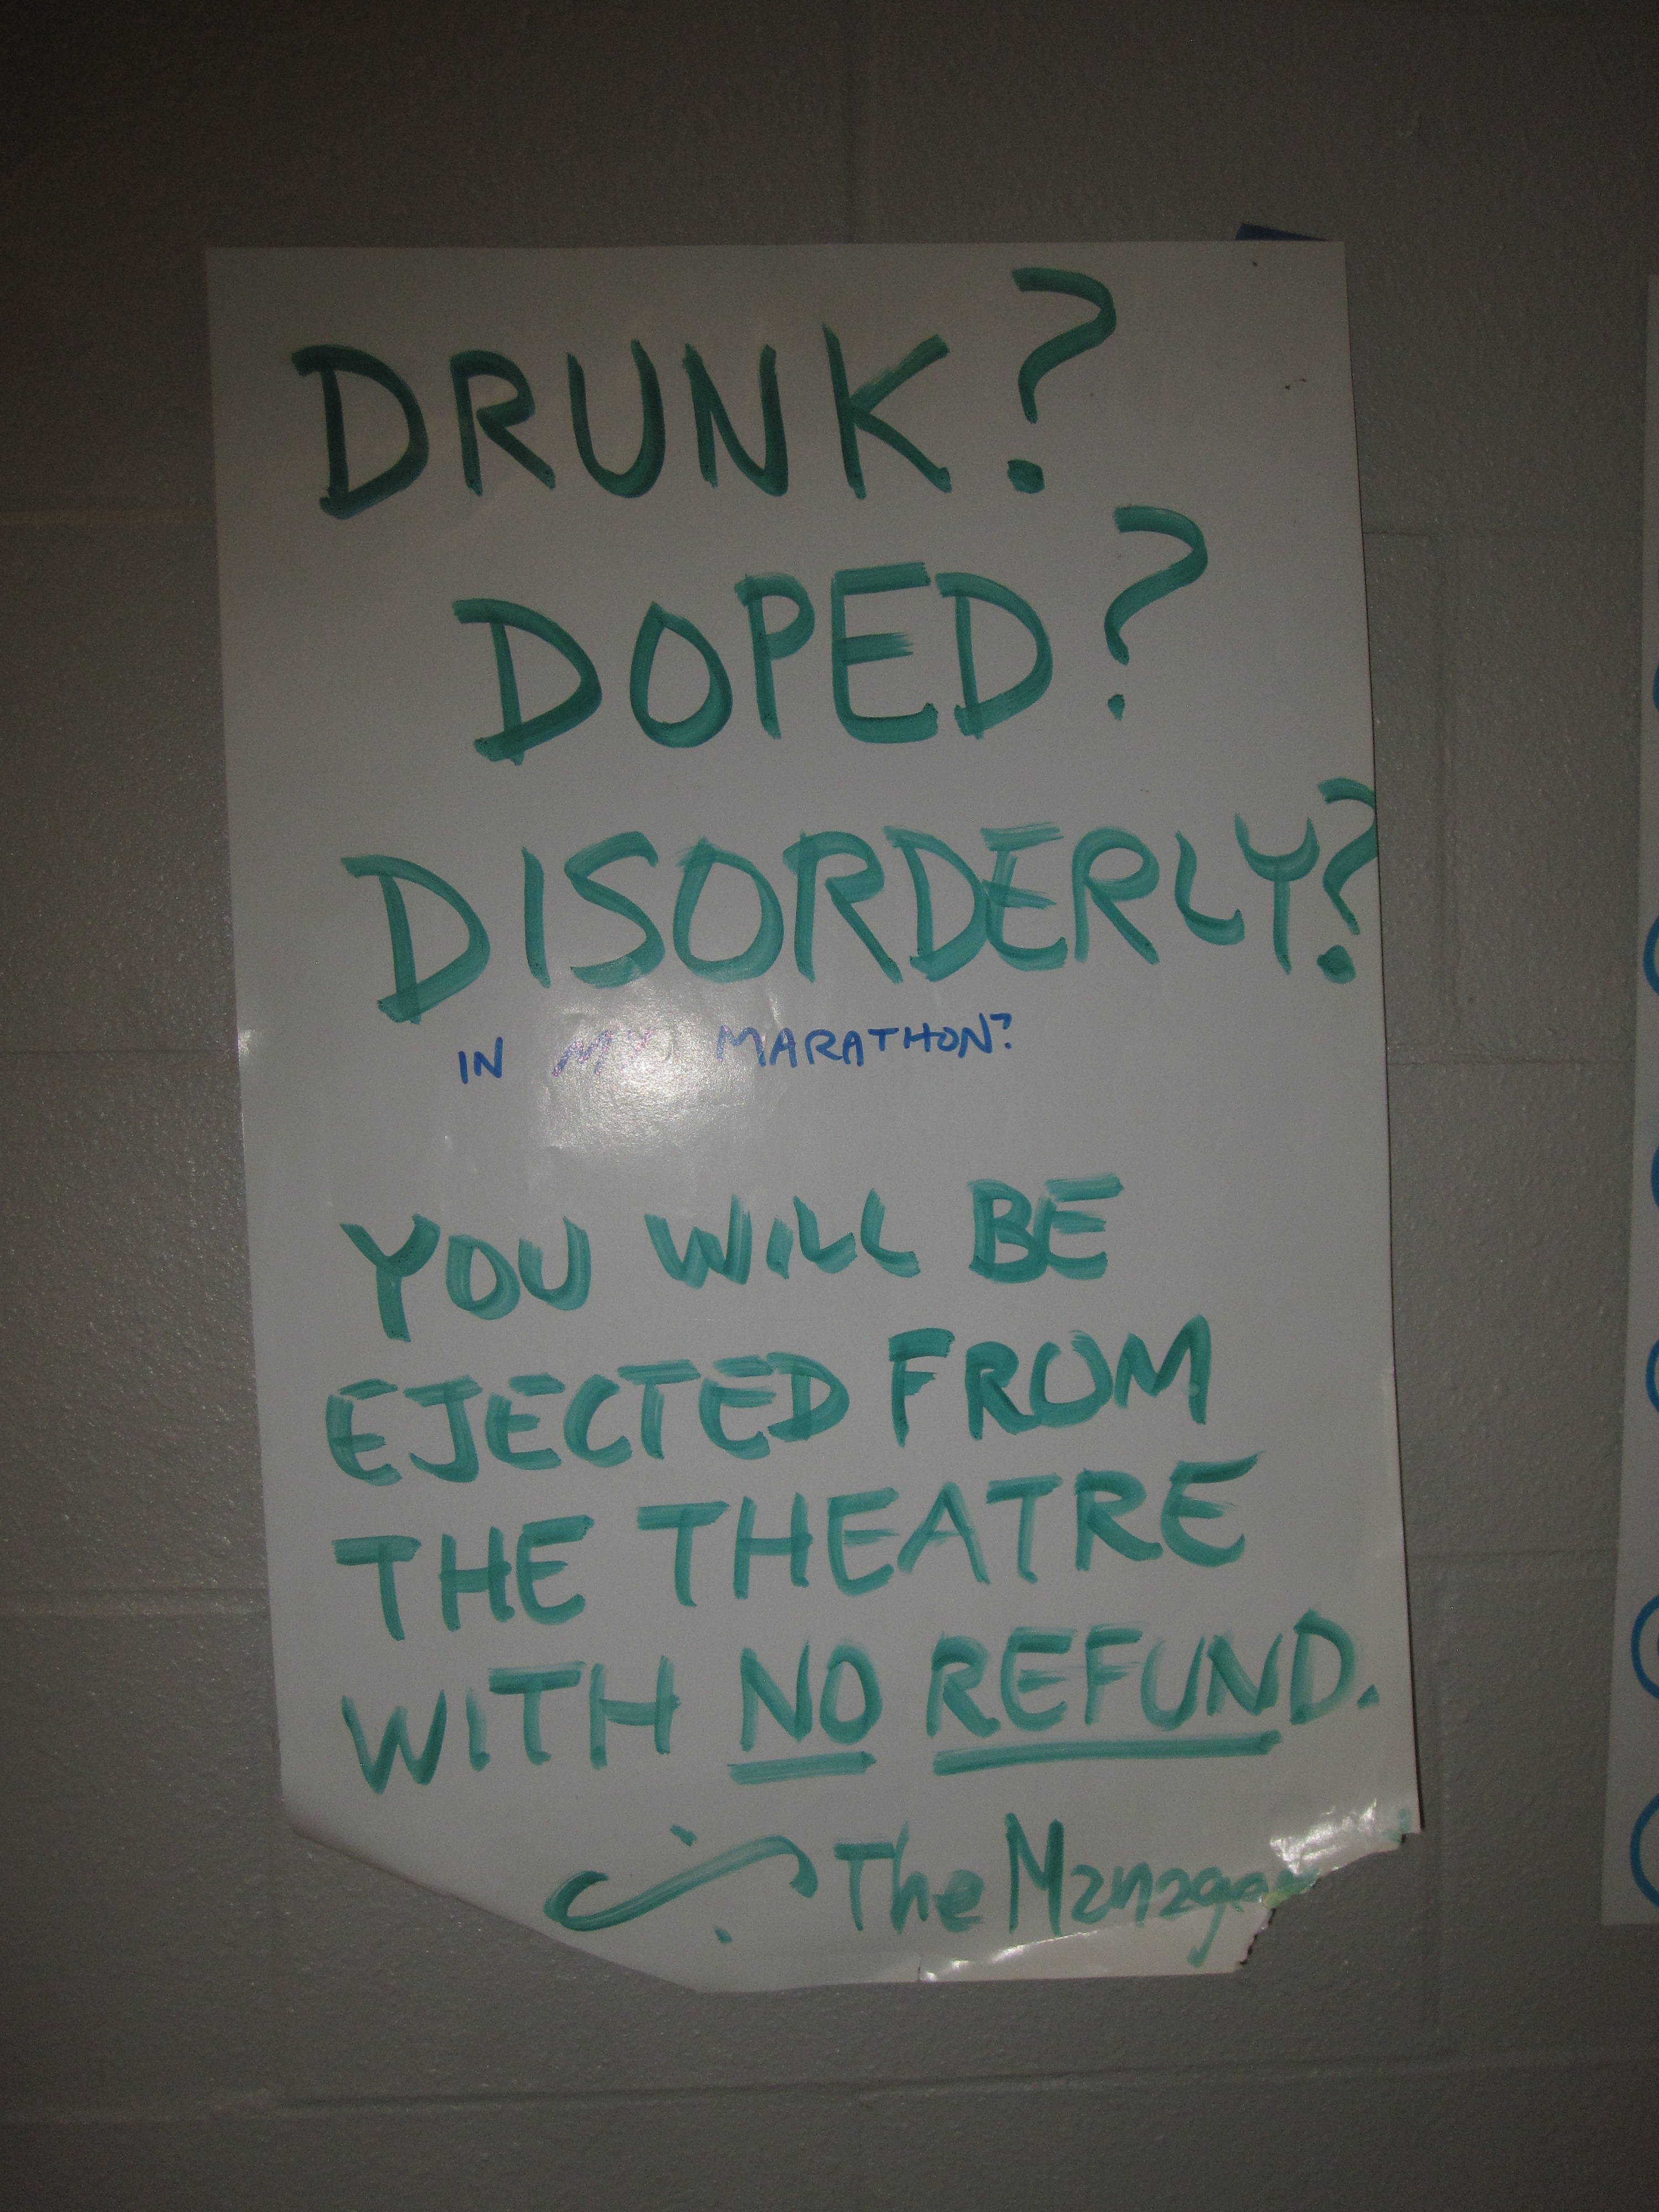 DRUNK?
DOPED?
DISORDERLY?
IN MY MARATHON?
YOU WILL BE
EJECTED FROM
THE THEATRE
WITH NO REFUND.
The Manager